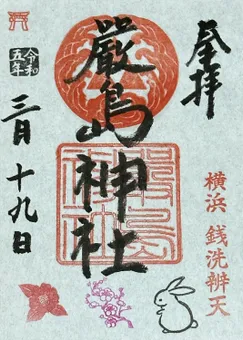 奉拝
横浜 銭洗辨天
嚴島神社
令和
五年
三月十九日